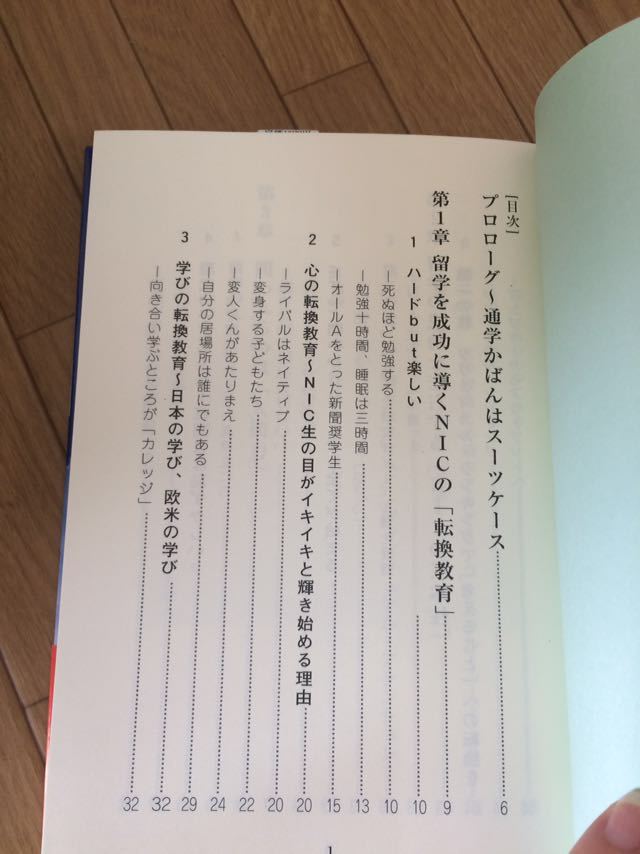 [目次]
プロローグ～通学かばんはスーツケース 6
第1章 留学を成功に導くNICの「転換教育」 9
1 ハードbut楽しい 10
―死ぬほど勉強する 10
―勉強十時間、睡眠は三時間 13
―オールAをとった新聞奨学生 15
2 心の転換教育～NIC生の目がイキイキと輝き始める理由 20
―ライバルはネイティブ 20
―変身する子どもたち 22
―変人くんがあたりまえ 24
―自分の居場所は誰にでもある 29
3 学びの転換教育～日本の学び、欧米の学び 32
―向き合い学ぶところが「カレッジ」 32
1